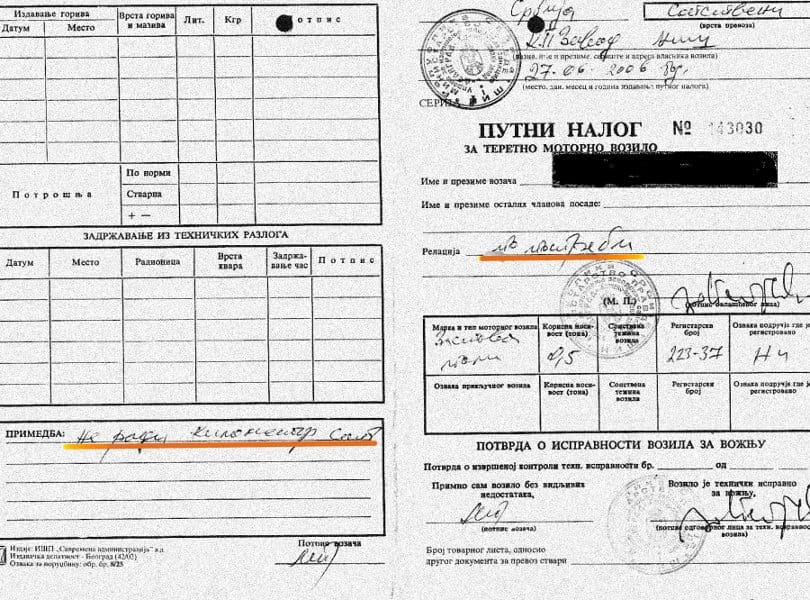 Издавање горива
Датум
Место
Врста горива и мазива
Лит.
Кгр
Потпис
Потрошња
По норми
Стварна
+ —
ЗАДРЖАВАЊЕ ИЗ ТЕХНИЧКИХ РАЗЛОГА
Датум
Место
Радионица
Врста квара
Задржавање час
Потпис
ПРИМЕДБА: не ради километар сат
Издаје: ИШП „Савремена администрација" а.д.
Издавачка делатност - Београд (42/02)
Ознака за поруџбину: обр. бр. 8/25
Потпис возача
Србија
Сопствени
(врста превоза)
КП Завод Ниш
(назив, име и презиме, седиште и адреса власника возила)
27.06. 2006 год.
(место, дан, месец и година издавања путног налога)
СЕРИЈА
ПУТНИ НАЛОГ № 143030
ЗА ТЕРЕТНО МОТОРНО ВОЗИЛО
Име и презиме возача
Име и презиме осталих чланова посаде:
Релација по потреби
(М. П.)
(потпис овлашћеног лица)
Марка и тип моторног возила
Корисна носивост (тона)
Сопствена тежина возила
Регистарски број
Ознака подручја где је регистровано
Застава
0,5
223-37
Ни
Ознака прикључног возила
Корисна носивост (тона)
Сопствена тежина возила
Регистарски број
Ознака подручја где је регистровано
ПОТВРДА О ИСПРАВНОСТИ ВОЗИЛА ЗА ВОЖЊУ
Потврда о извршеној контроли техн. исправности бр. од
Примио сам возило без видљивих недостатака,
(потпис возача)
Возило је технички исправно за вожњу,
(потпис одговорног лица за техн. исправност возила)
Број товарног листа, односно
другог документа за превоз ствари